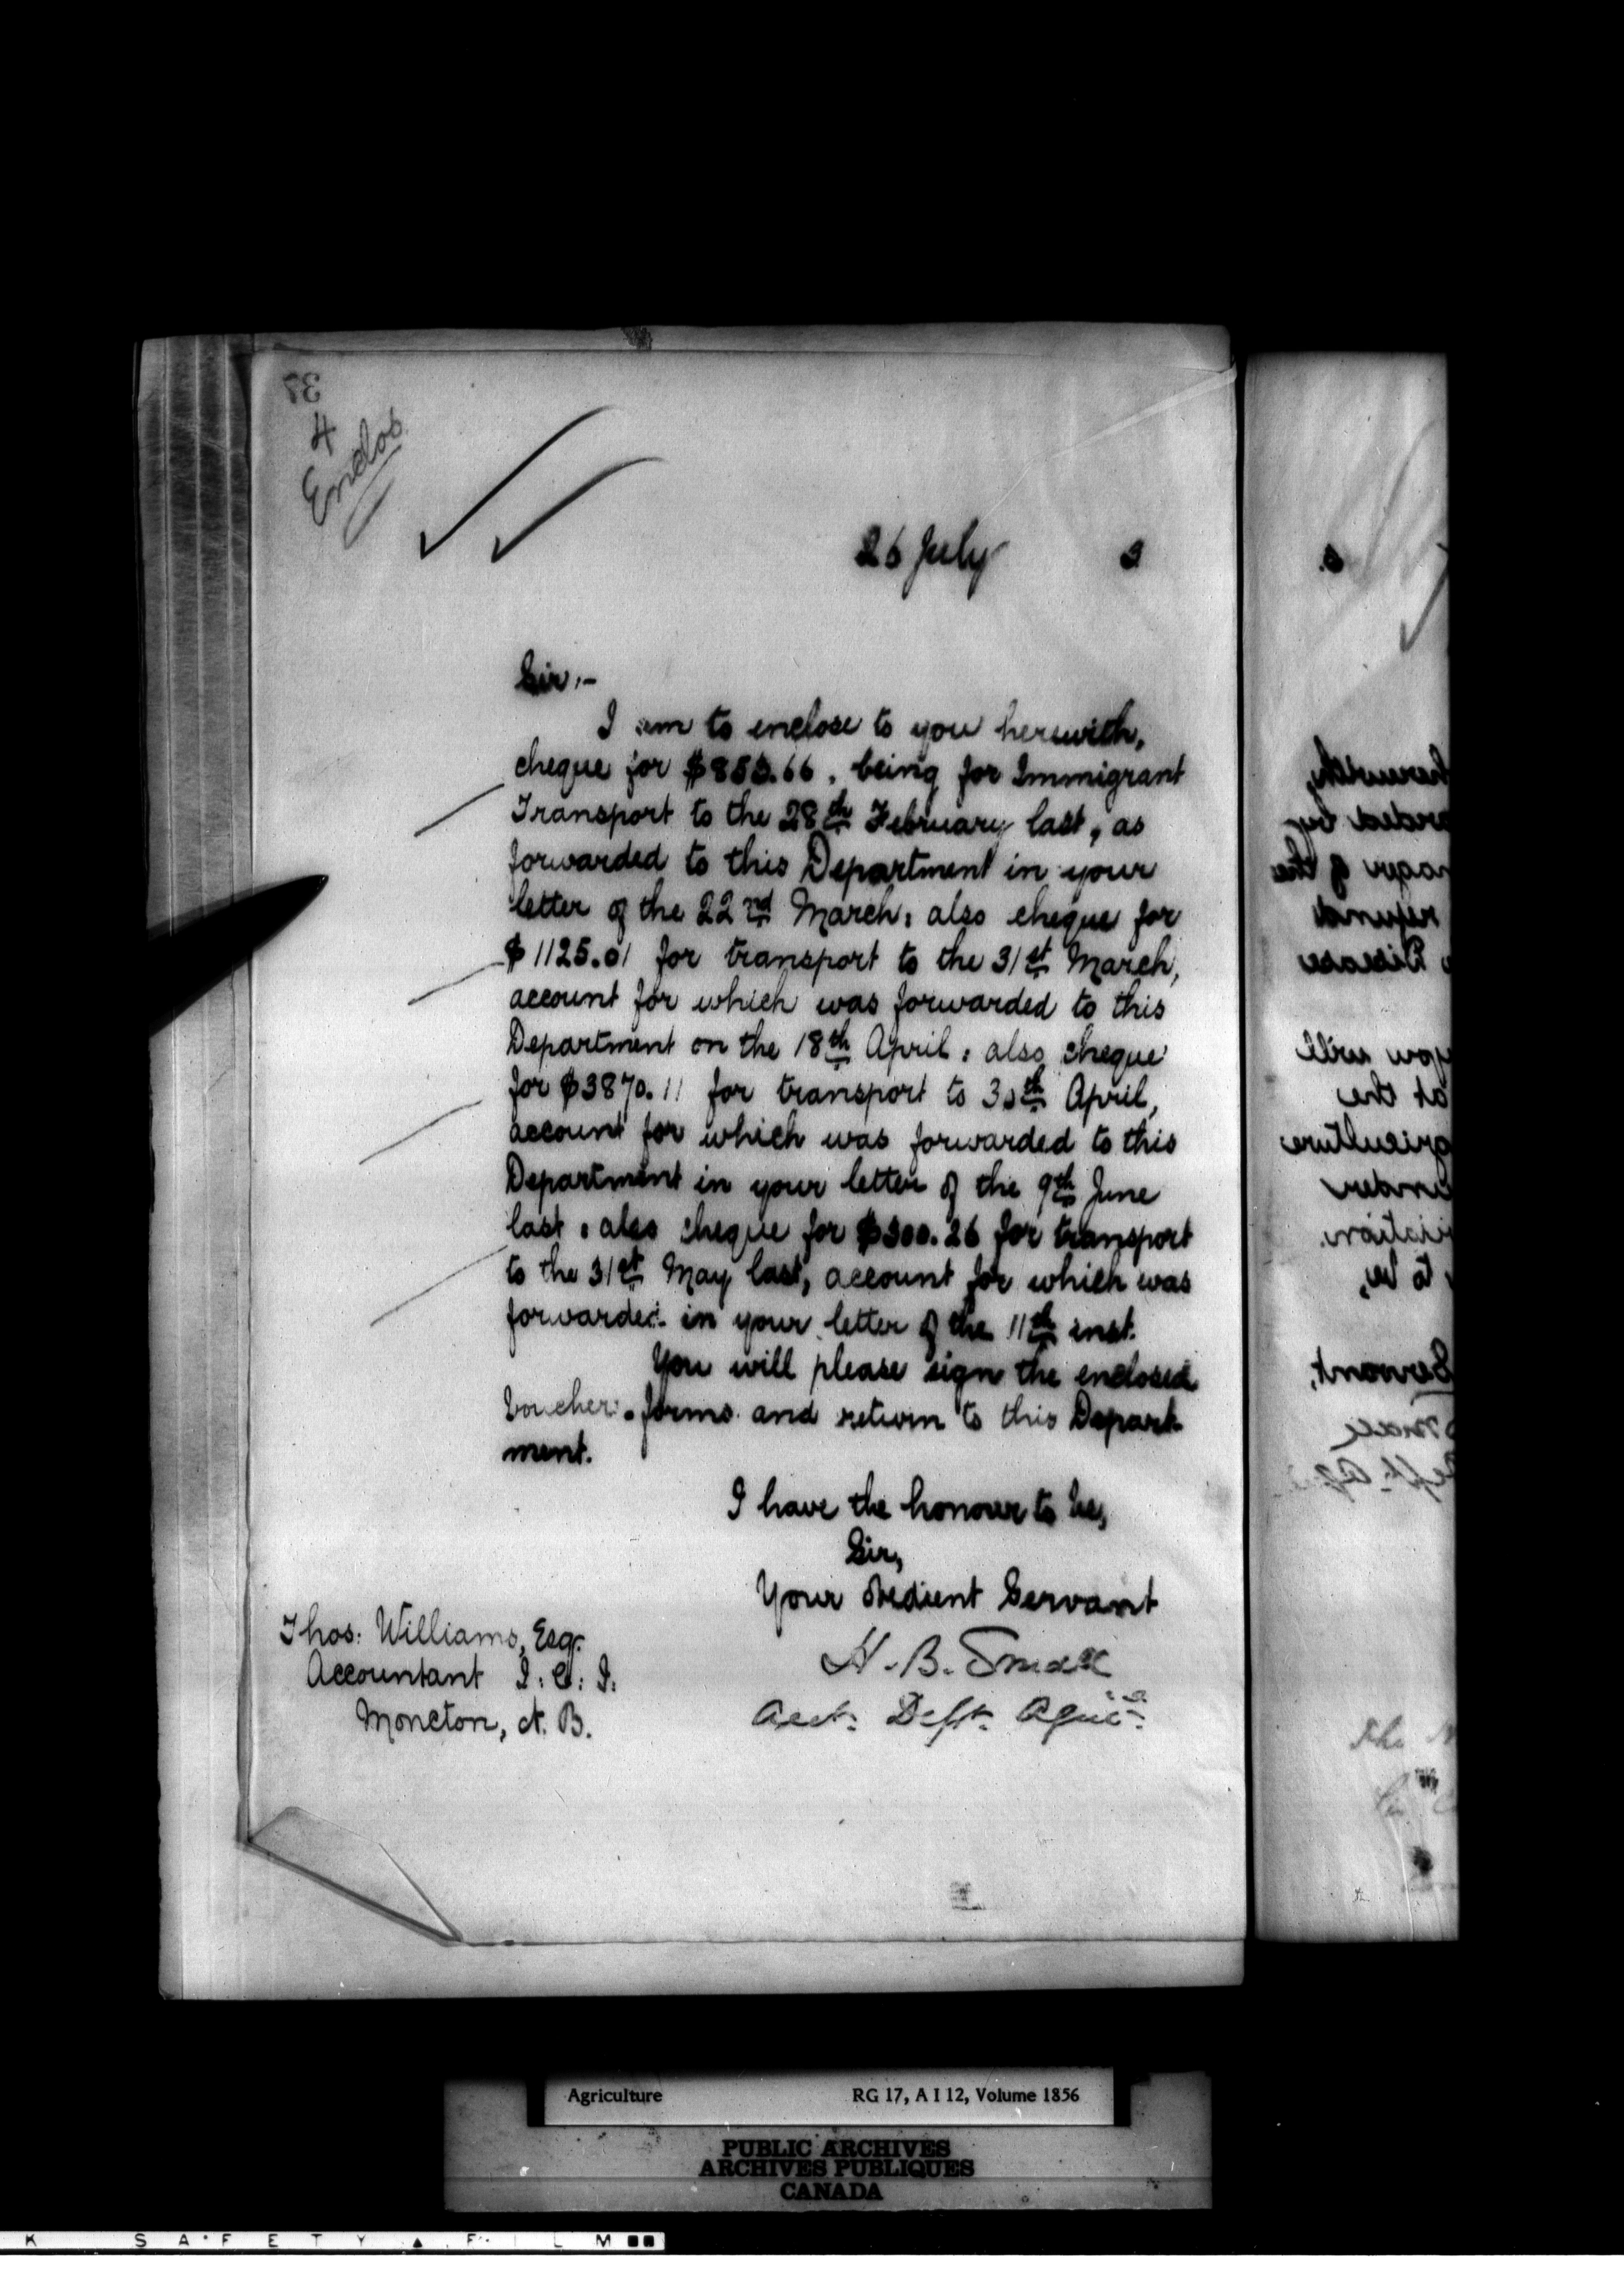 37
4
Enclos
26 July 3
Sir:-
I am to enclose to you herewith,
cheque for being for Immigrant
Transport to the 28th February last, as
forwarded to this Department in your
letter of the 22nd March: also cheque for
$1125.01 for transport to the 31st March,
account for which was forwarded to this
Department on the 18th April: also cheque
for $3870.11 for transport to 30th April,
account for which was forwarded to this
Department in your letter of the 9th June
last: also cheque for $300.26 for transport
to the 31st May last, account for which was
forwarded in your letter of the 11th inst.
You will please sign the enclosed
Voucher forms and return to this Depart-
ment.
I have the honour to be,
Sir,
Your Obedient Servant
H. B. Small
Acct. Dept. Agric.
Thos: Williams, Esq.
Accountant
Moncton, N.B.
herewith,
refund
Disease
you will
at the
to be,
Servant,
Small
Agriculture RG 17, A I 12, Volume 1856
PUBLIC ARCHIVES
ARCHIVES PUBLIQUES
CANADA
K SAFETY FILM